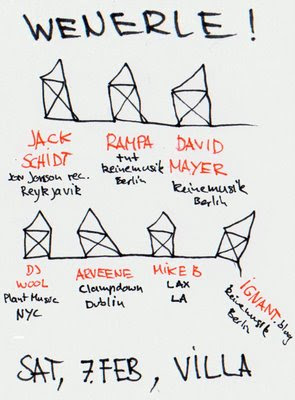 WENERLE!
JACK
SCHIDT
Jon Jonson rec.
Reykjavik
RAMPA
tnt
keinemusik
Berlin
DAVID
MAYER
keinemusik
Berlin
DJ
WOOL
Plant Music
NYC
ARVEENE
Clampdown
Dublin
MIKE B
LAX
LA
iGNANT.blog
keinemusik
Berlin
SAT, 7. FEB, VILLA